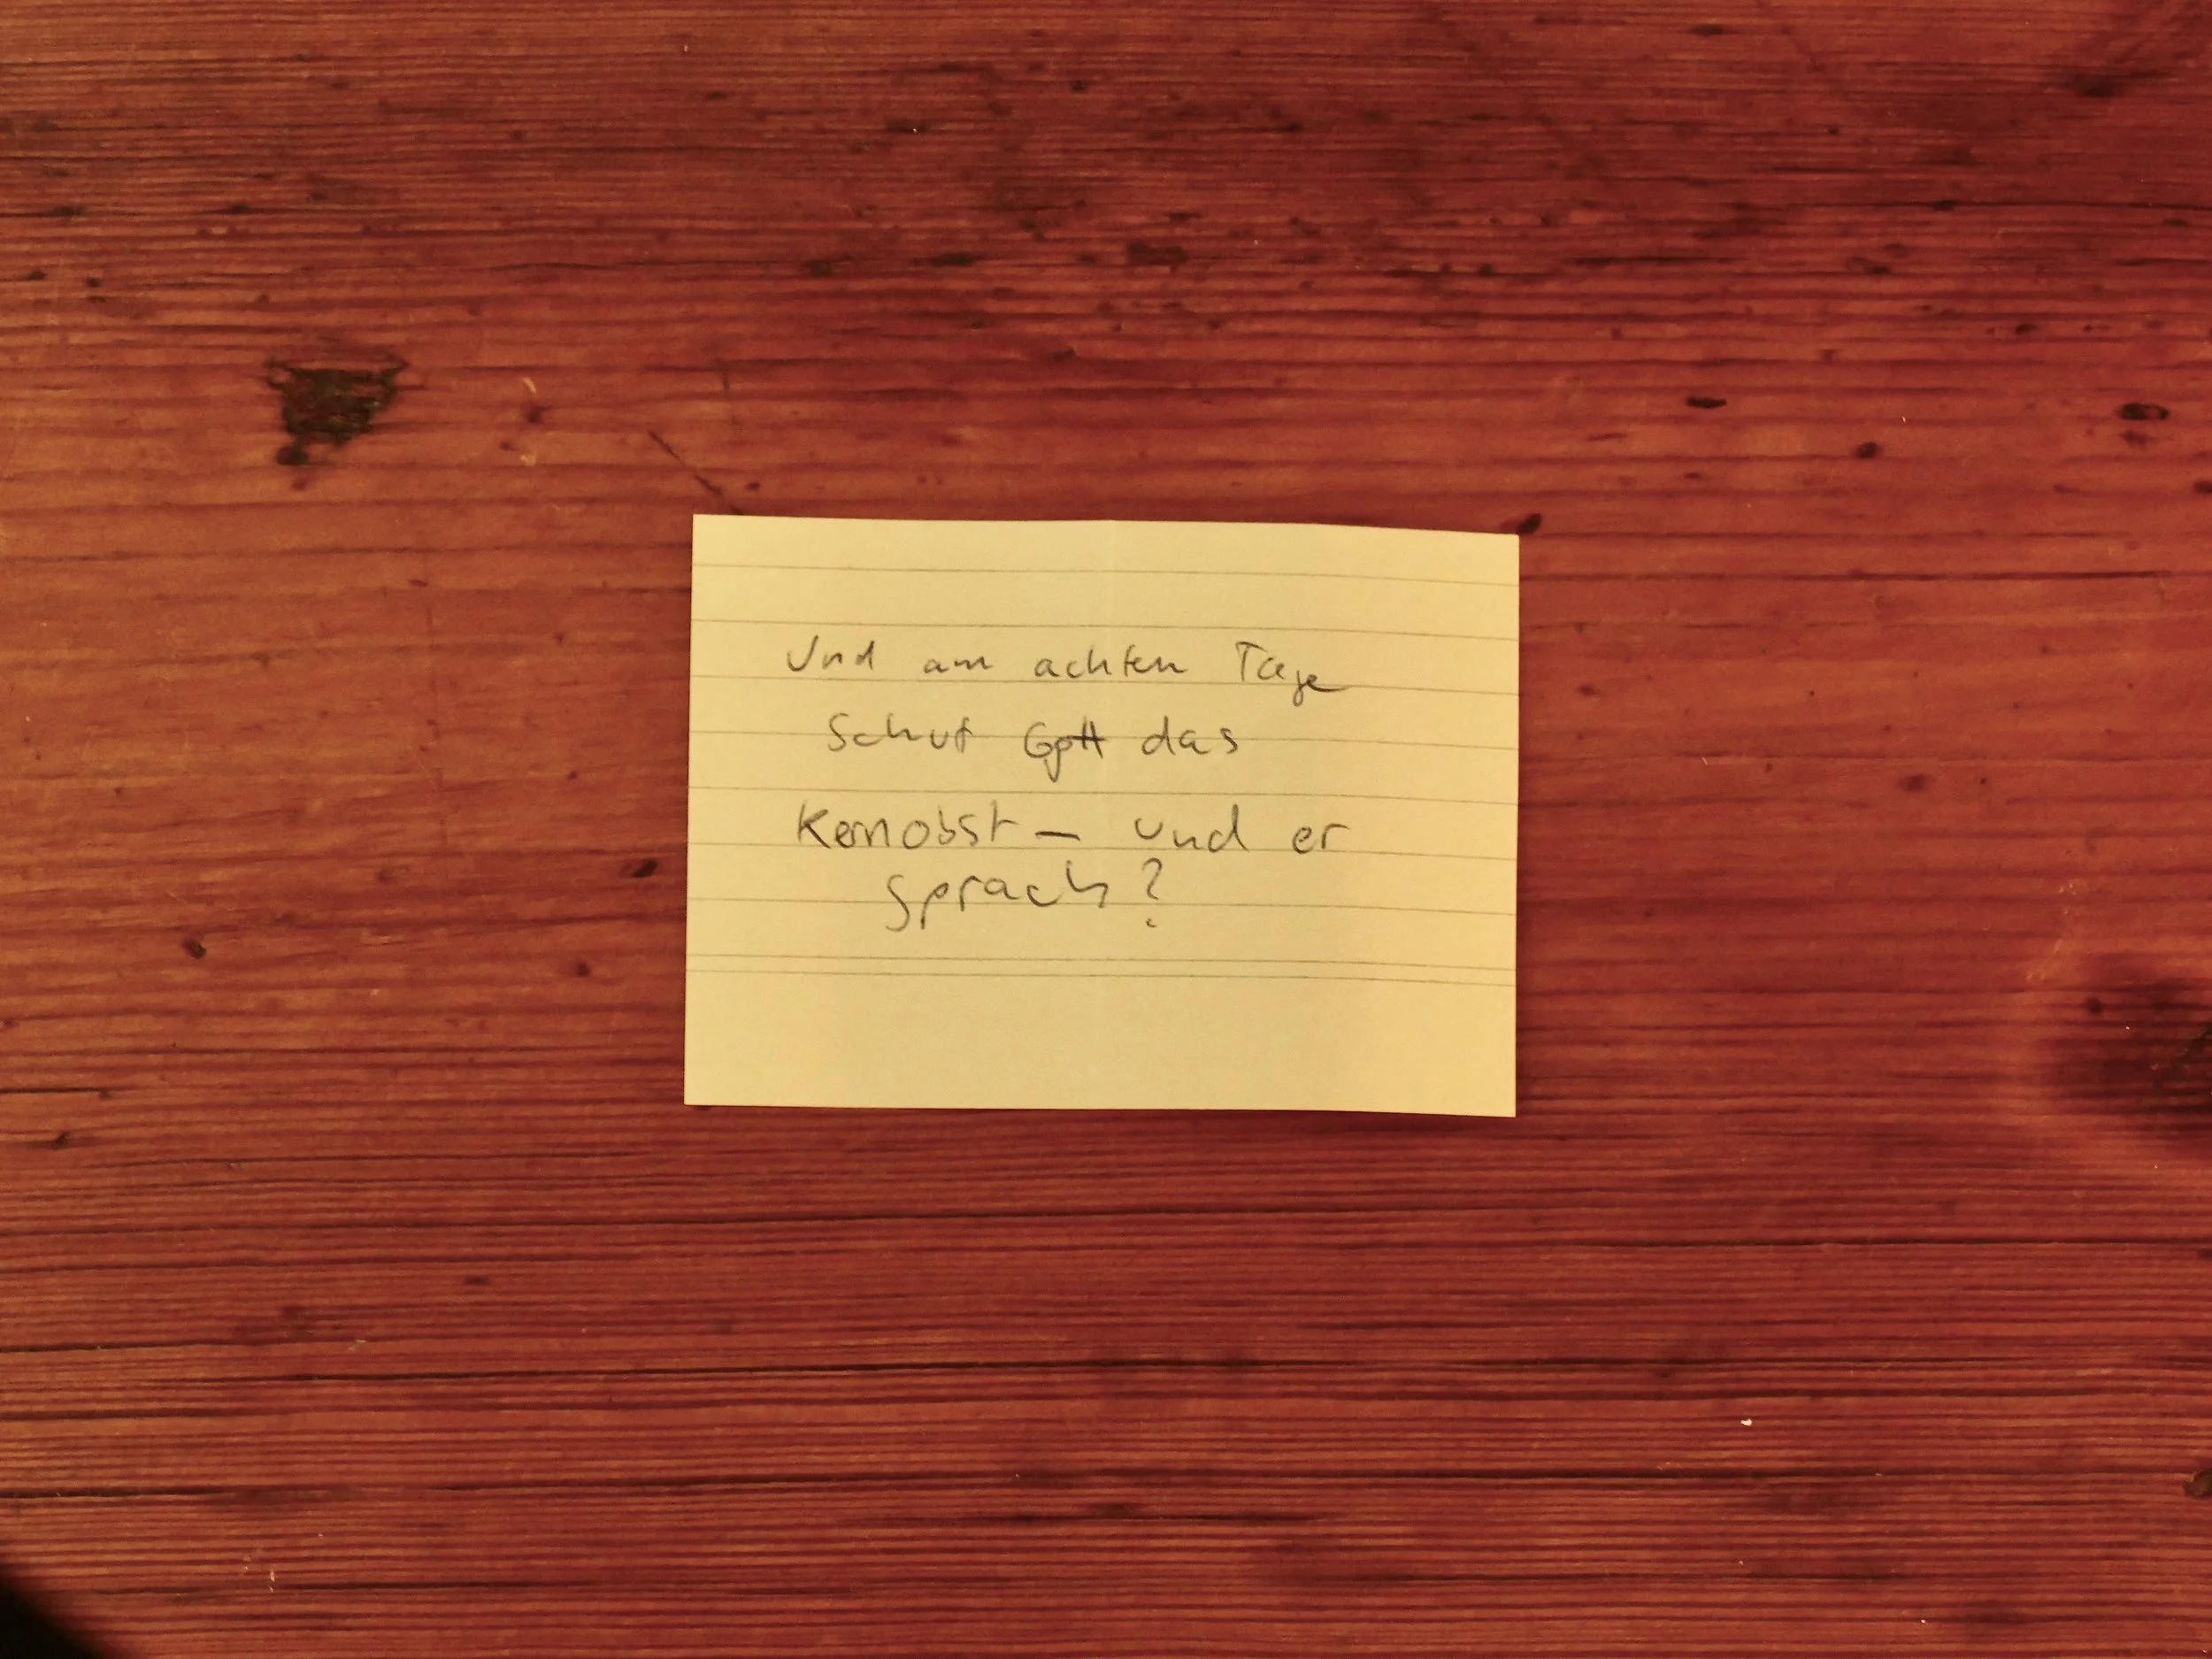 Und am achten Tage
schuf Gott das
Kernobst – und er
sprach?